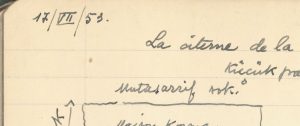 17/VII/53.
La citerne de la
Küçük
Mutasarrif sok.
Maison